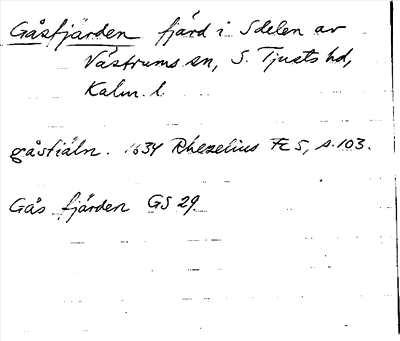 Gåsfjärden fjärd i S delen av
Västrums sn, S. Tjusts hd,
Kalm. l
gåsfiäln. 1634 Rhezelius Fc 5, s. 103.
Gås fjärden GS 29